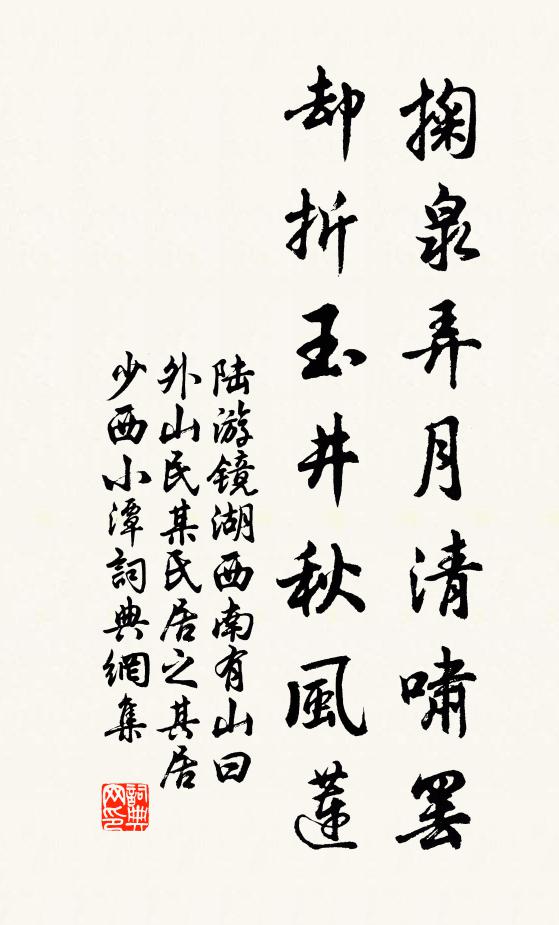 掬泉弄月清嘯罷
却折玉井秋風蓮
陆游镜湖西南有山曰
外山民某氏居之其居
少西小潭詞典網集
詞典网印